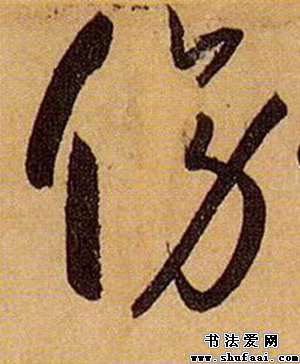 傍
书法爱网
www.shufaai.com